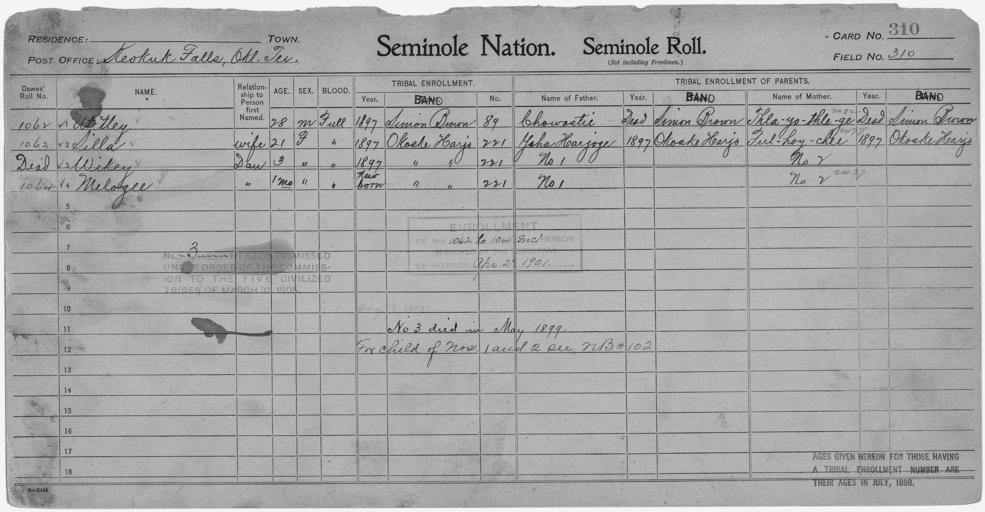 RESIDENCE: TOWN.
POST OFFICE: Keokuk Falls, Okl. Ter.
Seminole Nation. Seminole Roll.
(Not including Freedmen.)
CARD NO. 310
FIELD NO. 310
Dawes' Roll No. NAME. Relationship to Person first Named. AGE. SEX. BLOOD. TRIBAL ENROLLMENT. TRIBAL ENROLLMENT OF PARENTS.
Year. BAND No. Name of Father. Year. BAND Name of Mother. Year. BAND
1062 28 M Full 1897 Simon Brown 89 Chowastie Dead Simon Brown Dead Simon Brown
1063 2 Silla wife 21 F " 1897 Okoske Harjo 221 Yaha Harjoge 1897 Okoske Harjo Ful-hoy-chee 1897 Okoske Harjo
Dead 3 Wikey Dau 3 " " 1897 " " 221 No 1 No 2
1064 4 Melogee " 1 mo " " New born " " 221 No 1 No 2 2437
5
6
ENROLLMENT
OF NOS. 1062 to HEREON
7
No. 3 HEREON DISMISSED
UNDER ORDER OF THE COMMISSION
TO THE FIVE CIVILIZED
TRIBES OF MARCH 31, 1905.
OF INTERIOR 1901.
8
9
10
11 No 3 died in May 1899.
12 For child of Nos. 1 and 2 see NB # 102
13
14
15
16
17
18
AGES GIVEN HEREON FOR THOSE HAVING
A TRIBAL ENROLLMENT NUMBER ARE
THEIR AGES IN JULY, 1898.